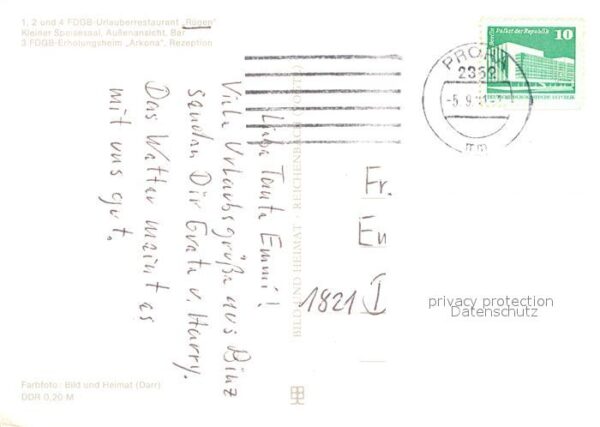 1, 2 und 4 FDGB-Urlauberrestaurant „Rügen“
Kleiner Speisesaal, Außenansicht, Bar
3 FDGB-Erholungsheim „Arkona“, Rezeption
Liebe Tante Emmi!
Viele Urlaubsgrüße aus Binz
senden Dir Grete u. Harry.
Das Wetter meint es
mit uns gut.
BILD UND HEIMAT · REICHENBACH (VOGTL)
Berlin
Palast der Republik
10
PROHN
2352
-5.9.
Fr.
En
1821
privacy protection
Datenschutz
Farbfoto: Bild und Heimat (Darr)
DDR 0,20 M